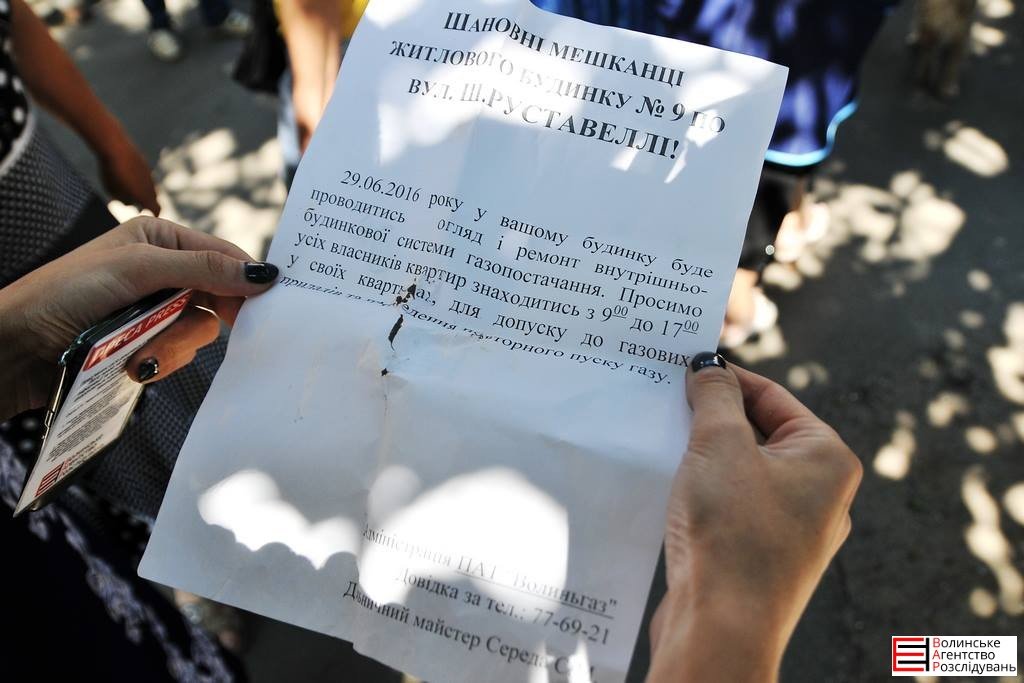 ШАНОВНІ МЕШКАНЦІ
ЖИТЛОВОГО БУДИНКУ № 9 ПО
ВУЛ. Ш.РУСТАВЕЛЛІ!
29.06.2016 року у вашому будинку буде
проводитись огляд і ремонт внутрішньо-
будинкової системи газопостачання. Просимо
усіх власників квартир знаходитись з 9⁰⁰ до 17⁰⁰
у своїх квартирах, для допуску до газових
приладів та повторного пуску газу.
Адміністрація ПАТ "Волиньгаз"
Довідка за тел.: 77-69-21
Дільничний майстер Середа
ПРЕСА PRESS
Волинське
Агентство
Розслідувань